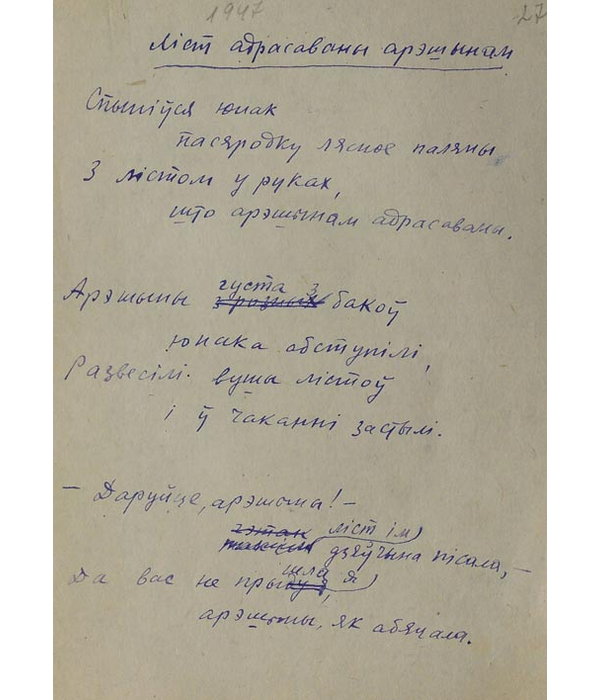 1947
27
Ліст адрасаваны арэшынам
Спыніўся юнак
пасяродку лясное паляны
З лістом у руках,
што арэшынам адрасаваны.
Арэшыны густа з бакоў
з розных
юнака абступілі,
Развесілі вушы лістоў
і ў чаканні застылі.
— Даруйце, арэшына! —
гэтак ліст ім
такім дзяўчына пісала, —
Да вас не прыйшла я,
арэшыны, як абяцала.